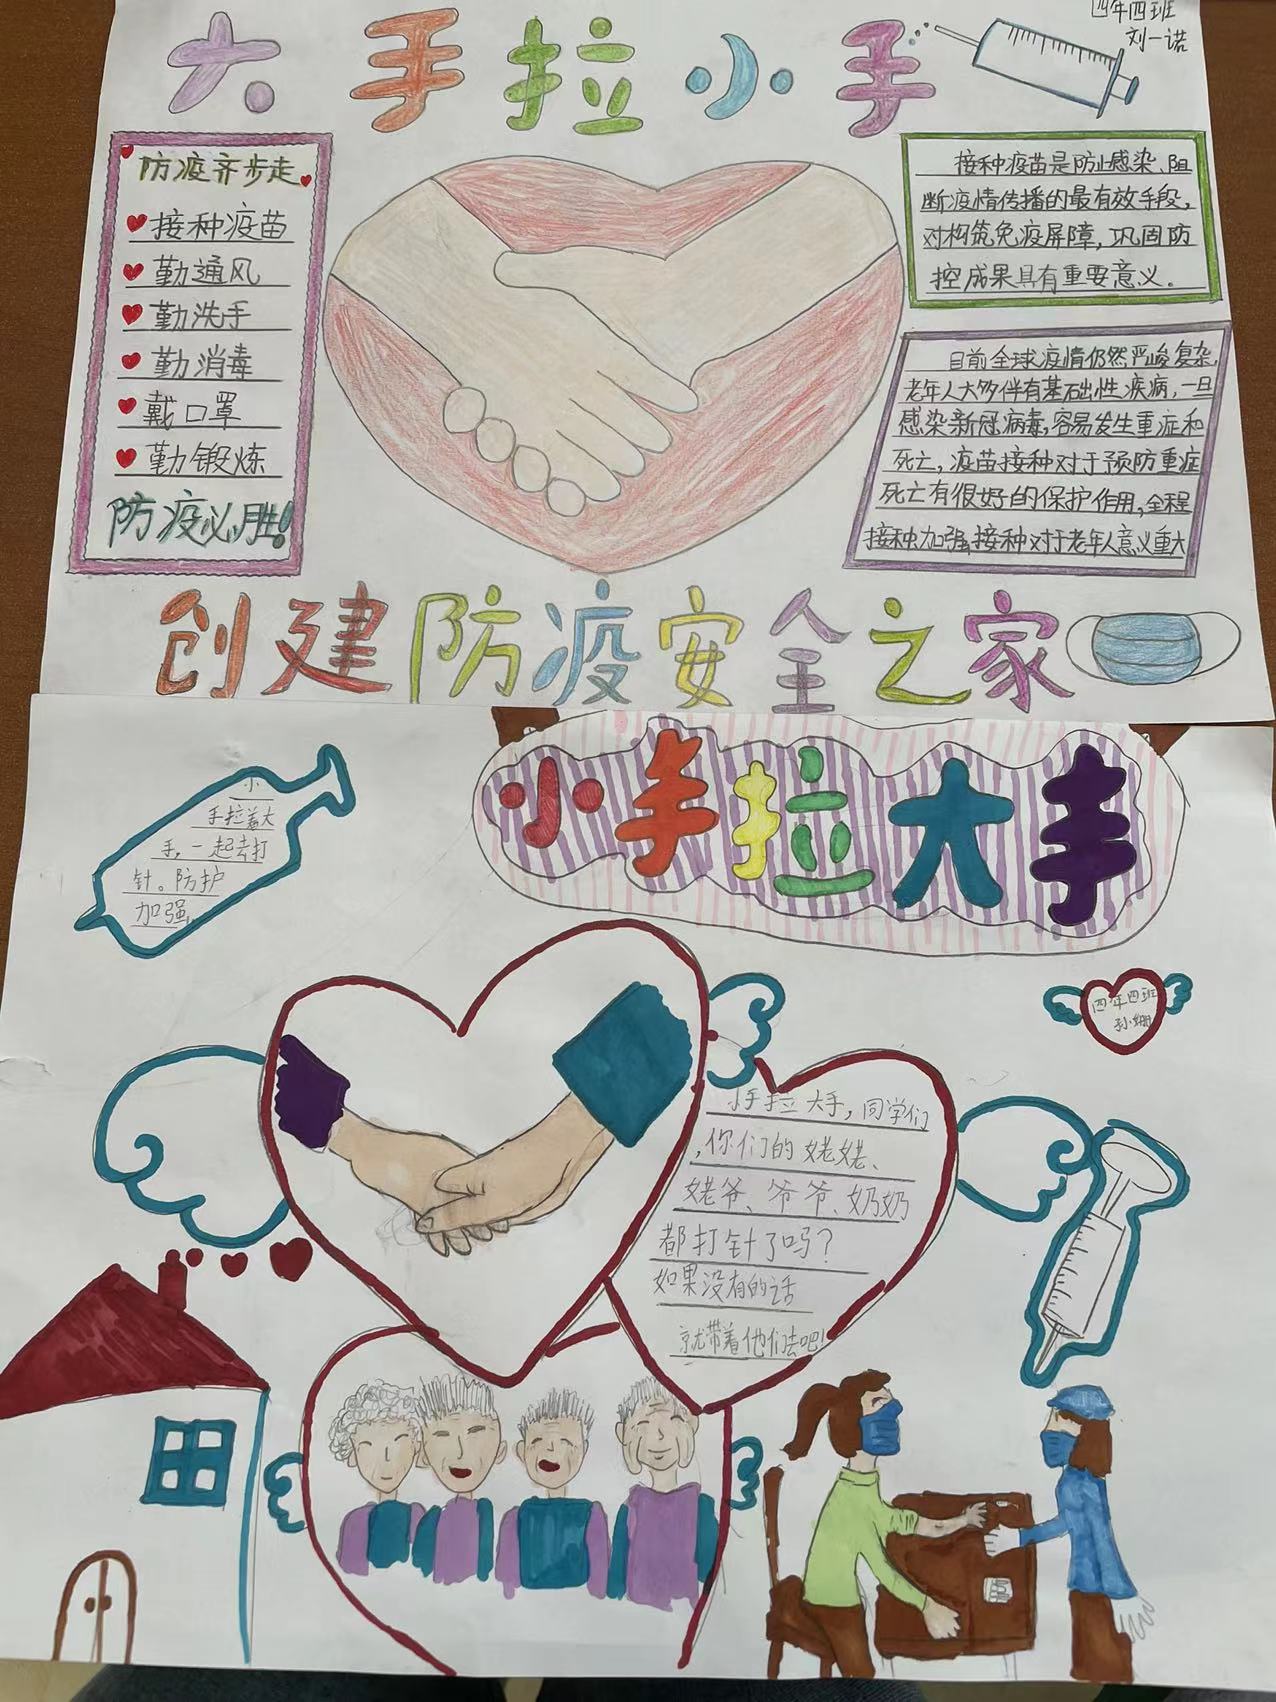 四年四班
刘一诺
大手拉小手
防疫齐步走
接种疫苗
勤通风
勤洗手
勤消毒
戴口罩
勤锻炼
防疫必胜!
接种疫苗是防止感染、阻
断疫情传播的最有效手段,
对构筑免疫屏障,巩固防
控成果具有重要意义。
目前全球疫情仍然严峻复杂,
老年人大多伴有基础性疾病,一旦
感染新冠病毒,容易发生重症和
死亡,疫苗接种对于预防重症
死亡有很好的保护作用,全程
接种加强接种对于老年人意义重大
创建防疫安全之家
小手拉大手
小
手拉着大
手,一起去打
针。防护
加强
四年四班
孙
小手拉大手,同学们
,你们的姥姥、
姥爷、爷爷、奶奶
都打针了吗?
如果没有的话
就带着他们去吧!